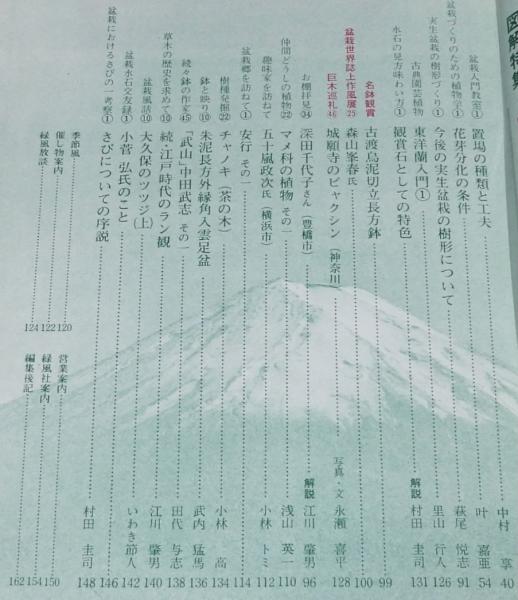 図解特集
盆栽入門教室① 置場の種類と工夫 中村 享 40
盆栽づくりのための植物学① 花芽分化の条件 叶 嘉亜 54
実生盆栽の樹形づくり① 今後の実生盆栽の樹形について 萩尾 悦志 91
古典園芸植物 東洋蘭入門① 里山 行人 126
水石の見方味わい方① 観賞石としての特色 解説 村田 圭司 131
名鉢観賞 古渡烏泥切立長方鉢 99
盆栽世界誌上作風展㉕ 森山峯春氏 100
巨木巡礼㊻ 城願寺のビャクシン(神奈川) 写真・文 永瀬 喜平 128
お棚拝見㉞ 深田千代子さん(豊橋市) 解説 江川 肇男 96
仲間どうしの植物㉒ マメ科の植物 その一 浅山 英一 110
趣味家を訪ねて 五十嵐政次氏(横浜市) 小林 トミ 112
盆栽郷を訪ねて① 安行 その一 114
樹種発掘㉒ チャノキ(茶の木) 小林 高 134
鉢と映り⑩ 朱泥長方外縁角入雲足盆 武内 猛馬 136
続々鉢の作家㊺ 「武山」中田武志 その一 田代 与志 138
草木の歴史を求めて⑩ 続・江戸時代のラン観 江川 肇男 140
盆栽風話⑩ 大久保のツツジ(上) いわき節人 142
盆栽水石交友録① 小菅 弘氏のこと 146
盆栽におけるさびの一考察① さびについての序説 村田 圭司 148
季節風 120
催し物案内 122
緑風放談 124
営業案内 150
緑風社案内 154
編集後記 162